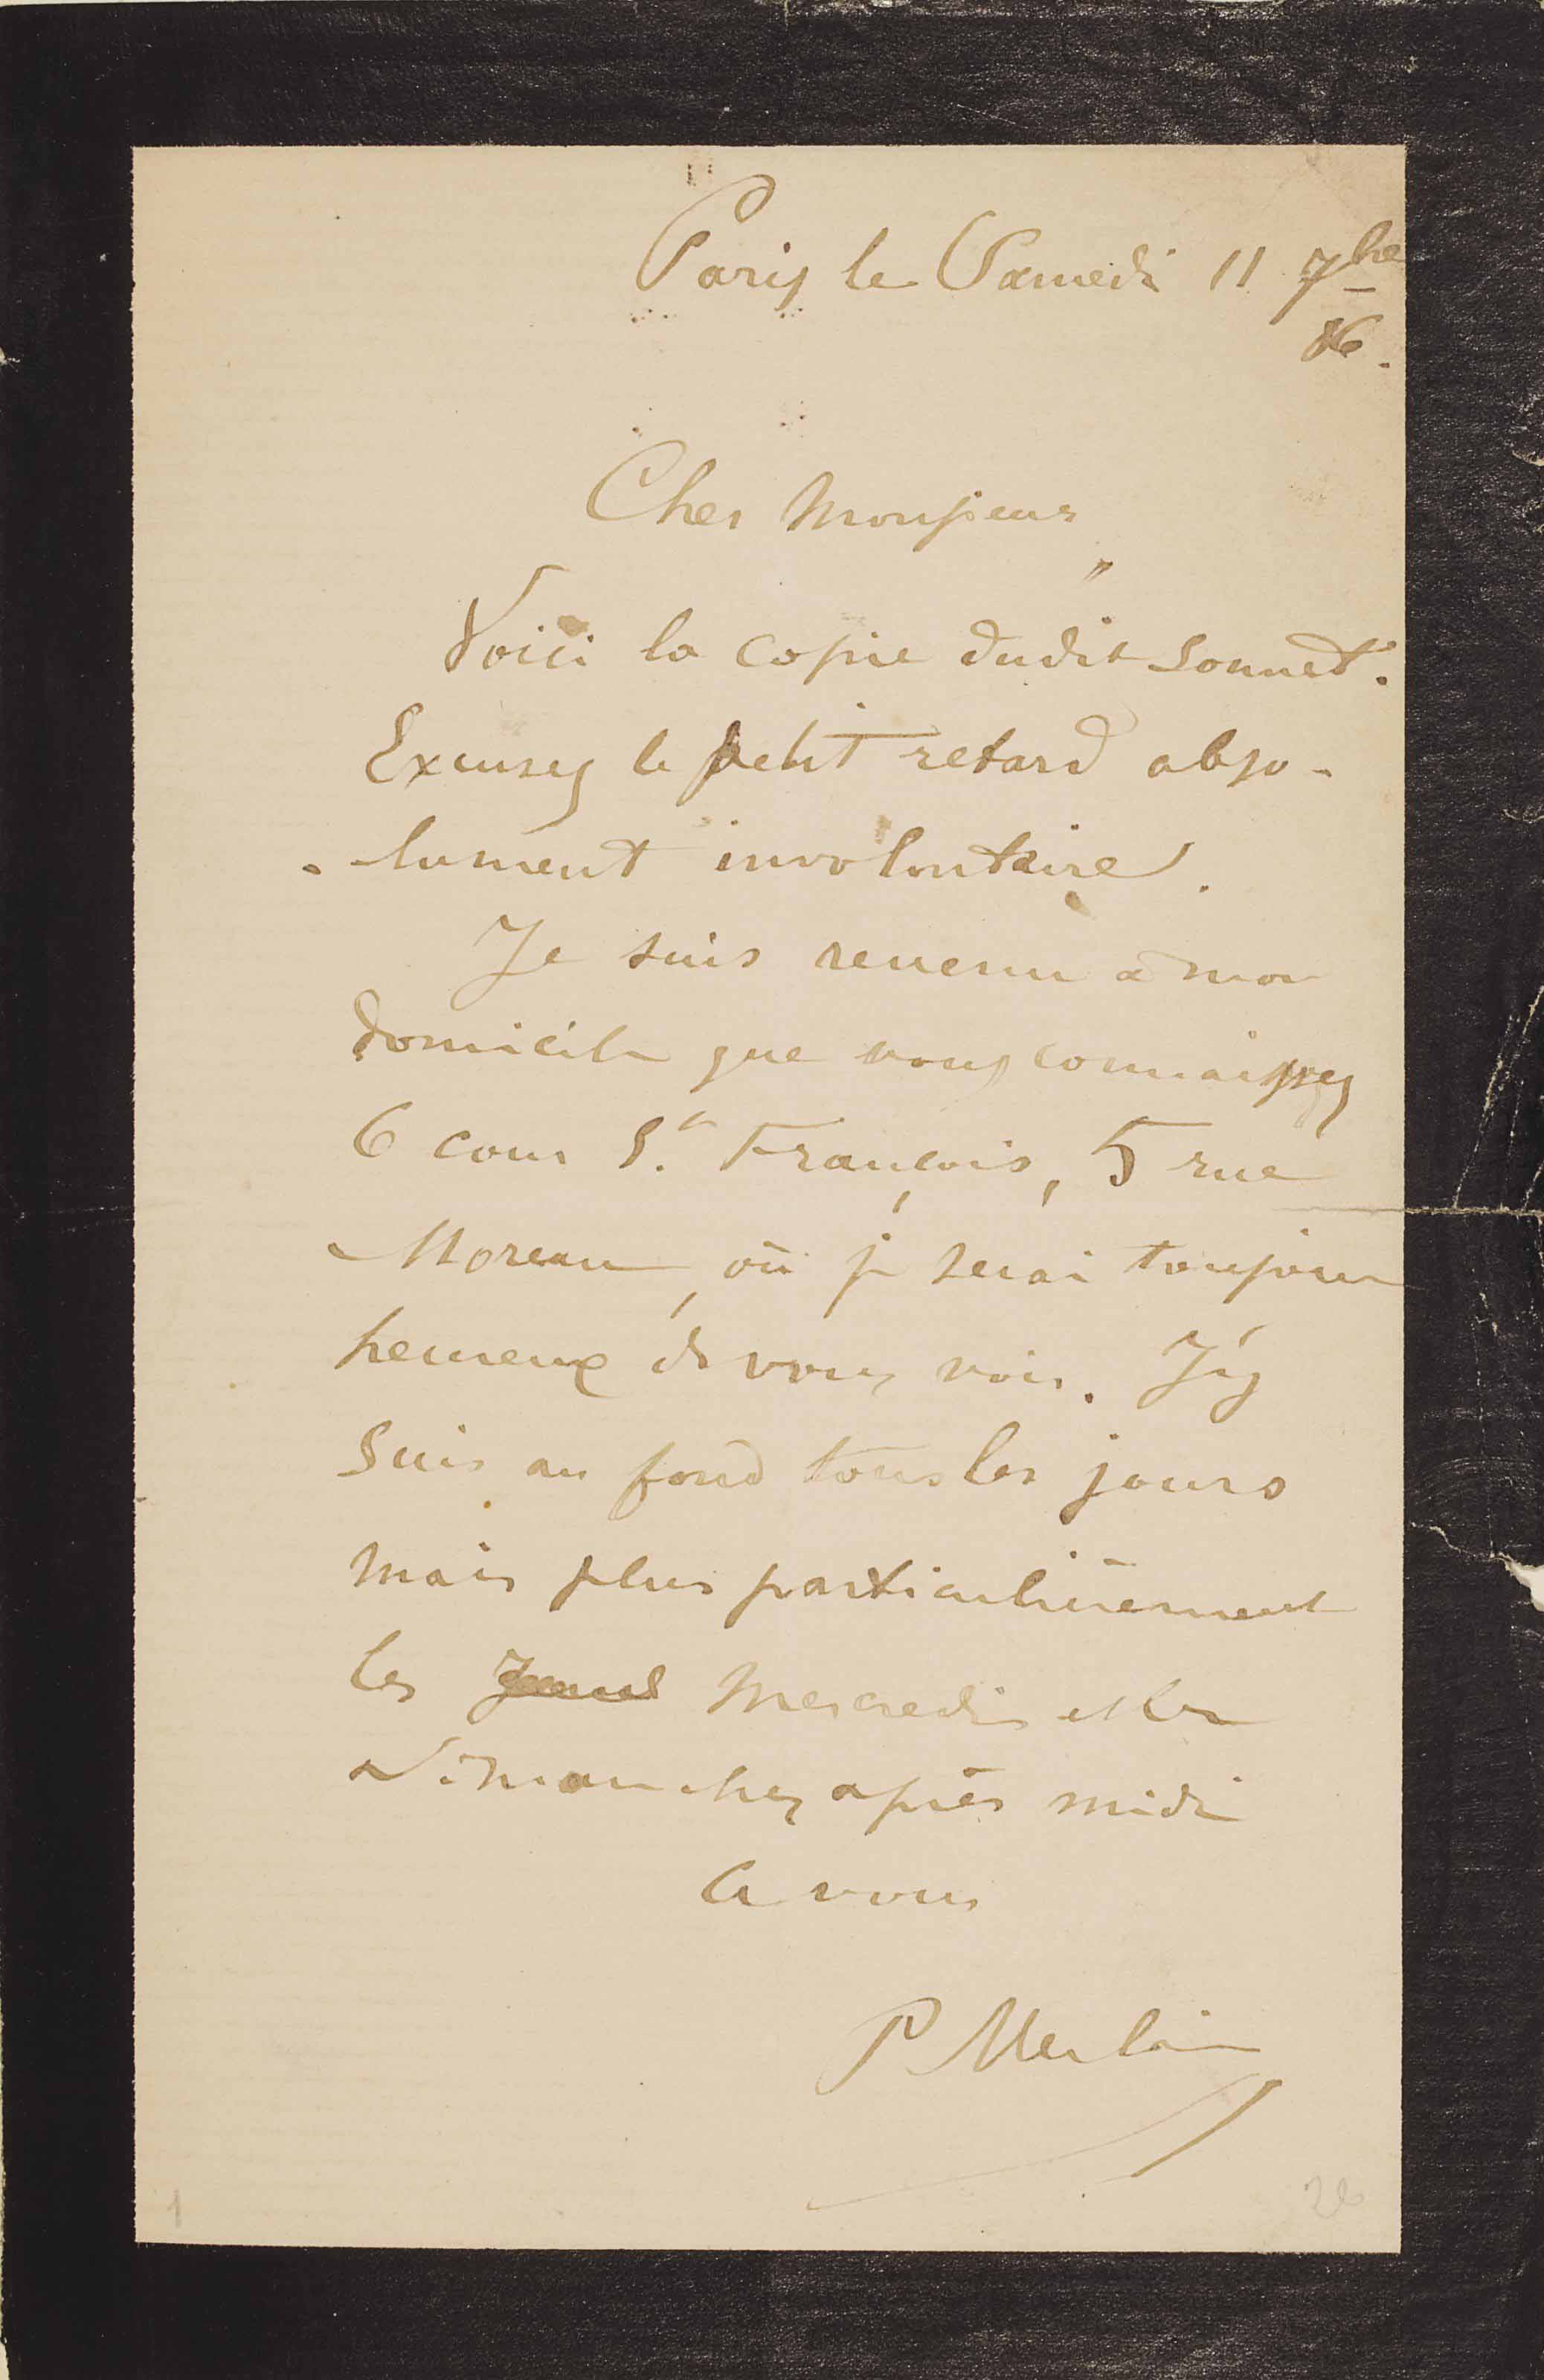 Paris le Samedi 11 7bre
86.
Cher Monsieur,
Voici la copie dudit Sonnet.
Excusez le petit retard abso-
-lument involontaire.
Je suis revenu à mon
domicile que vous connaissez
6 cour St. François, 5 rue
Moreau, où je serai toujours
heureux de vous voir. J'y
suis au fond tous les jours
mais plus particulièrement
les Mercredis et les
Dimanches après midi
A vous
P Verlaine
1
26